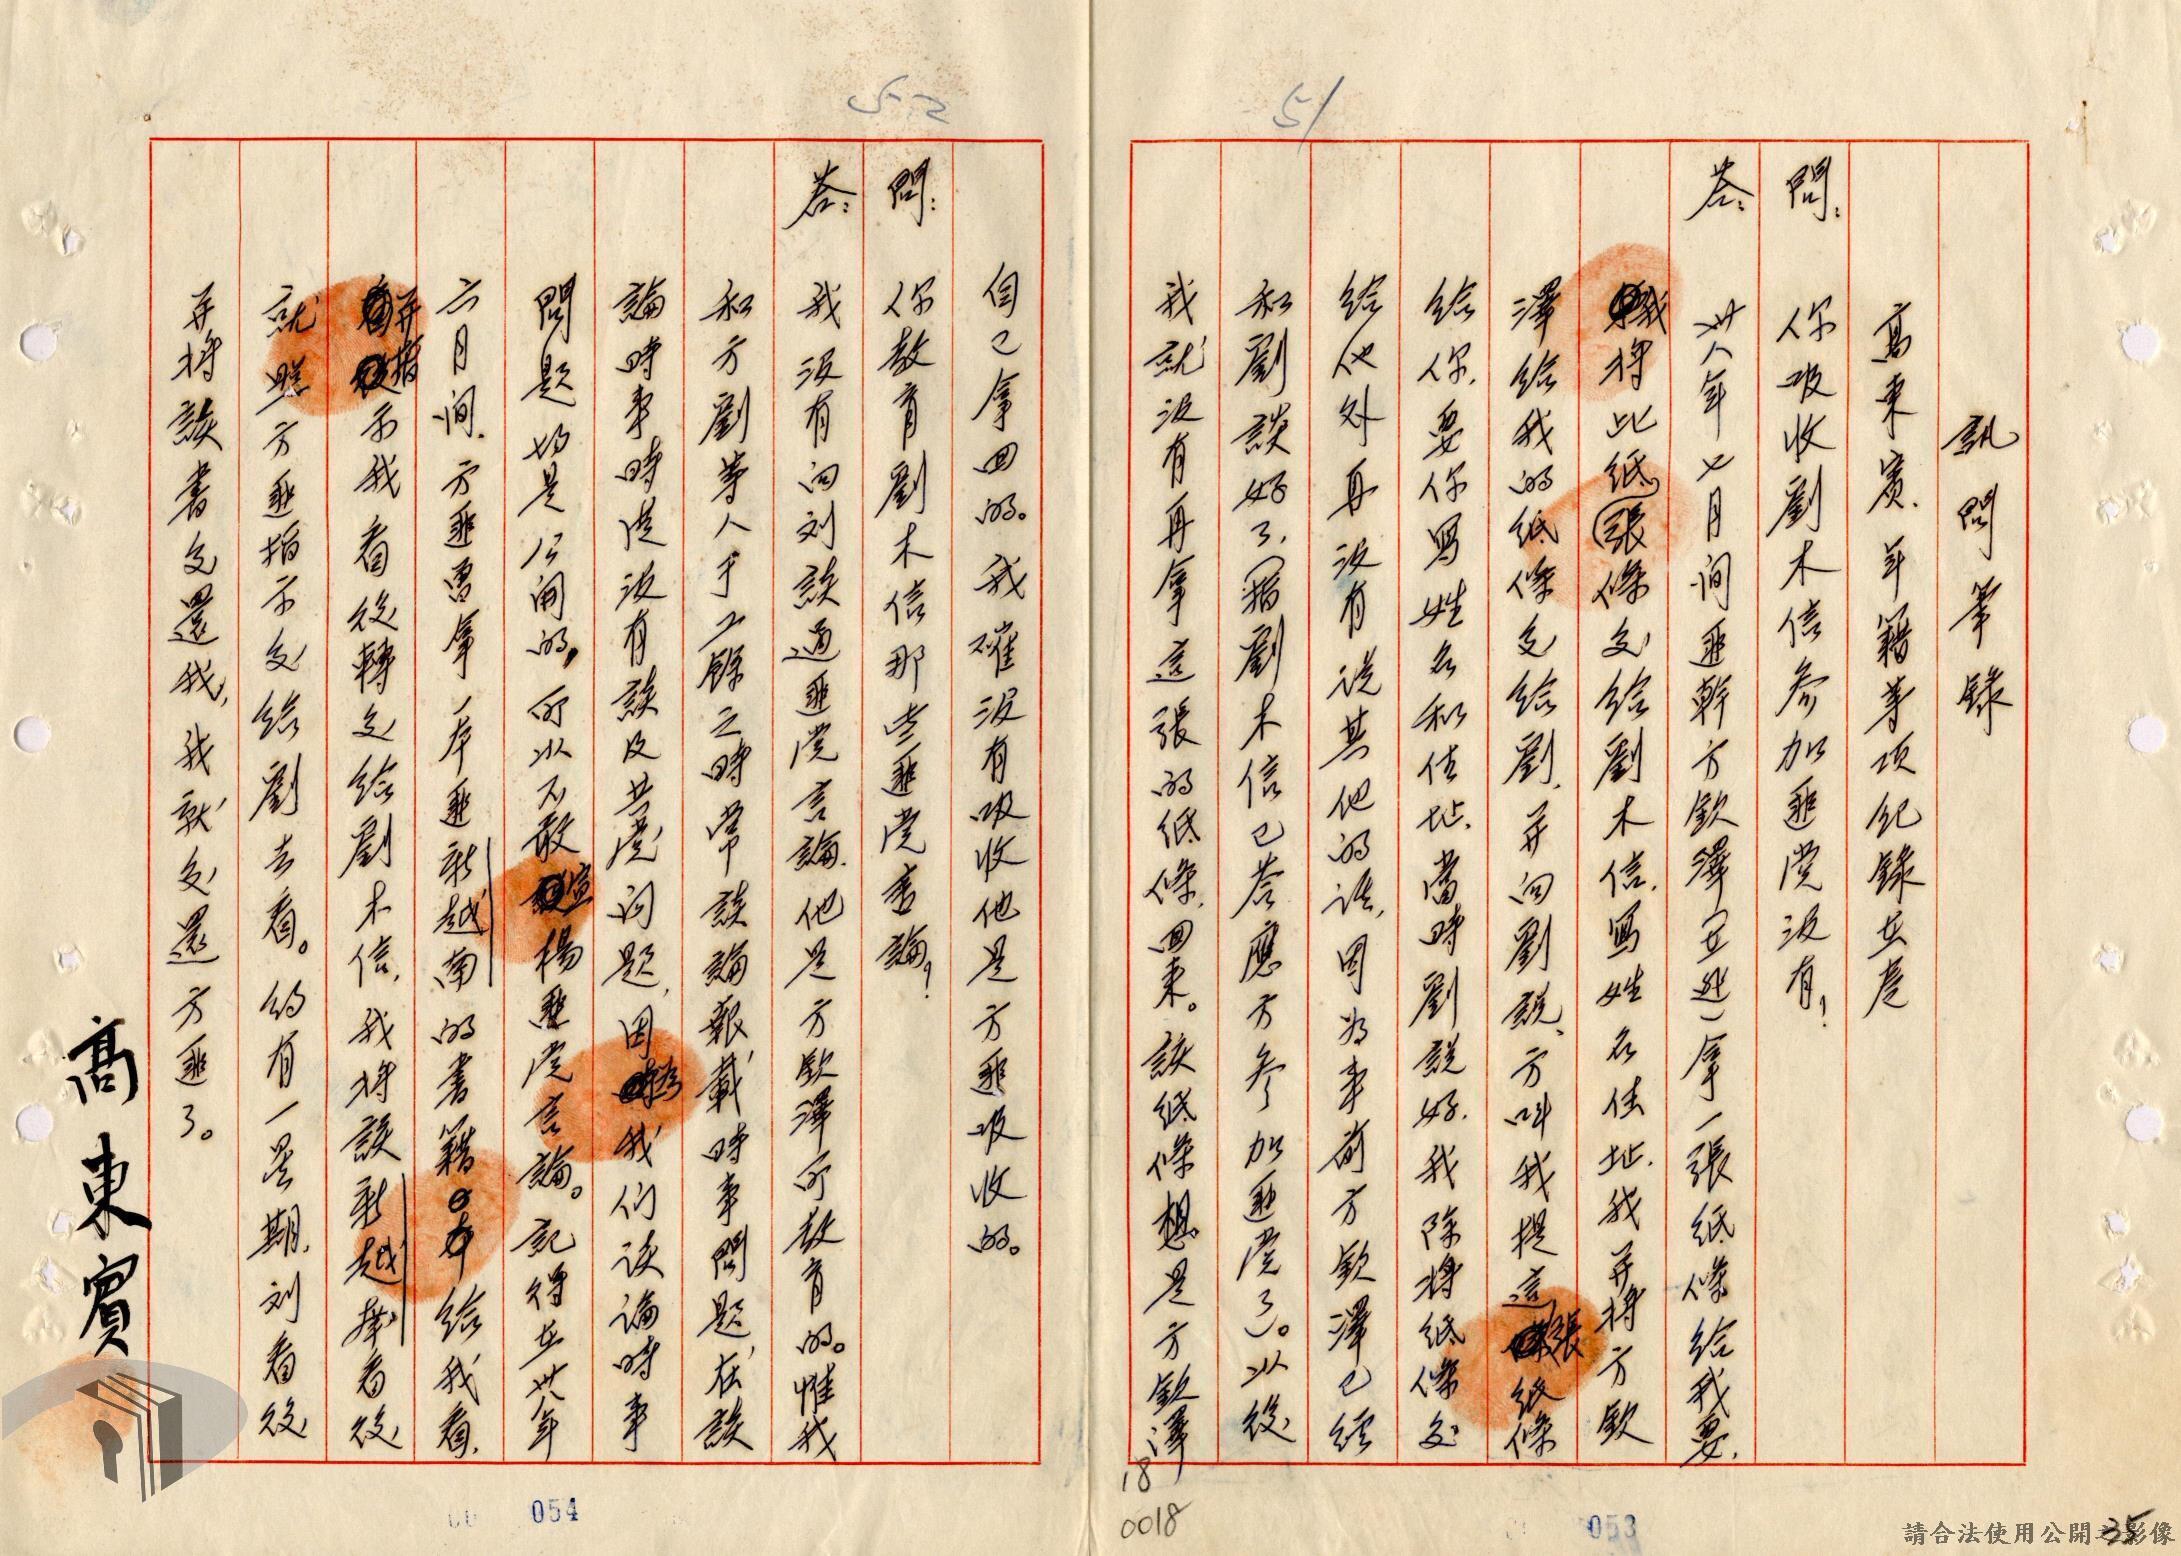 51
訊問筆錄
高東賓、年籍等項紀錄在卷
問：你吸收劉木信參加匪党没有？
答：卅八年七月间匪幹方欽澤（在逃）拿一張紙條給我要，
我將此紙（張）條交給劉木信，寫姓名住址，我并將方欽
澤給我的紙條交給劉，并向劉說，方叫我提這張紙條
給你，要你写姓名和住址，當時劉說好，我除將紙條交
給他外再没有说其他的话，因为事前方欽澤已经
和劉談好了，（指劉木信已答應方參加匪党了）。以後
我就没有再拿這張的紙條回来。該紙條想是方欽澤
18
0018
053
35
52
自已拿回的。我確没有吸收他是方匪吸收的。
問：你教育劉木信那些匪党言論？
答：我没有向刘談過匪党言論，他是方欽澤所教育的。惟我
和方劉等人于工餘之時常談論報載時事問題，在談
論時事時從没有談及共党问题，因为我们谈論時事
問題均是公開的，所以不敢宣揚匪党言論。記得在卅八年
六月间，方匪曾拿一本匪新越南的書籍給我看，
并指示我看後轉交給劉木信，我將該新越南看後
就照方匪指示交給劉去看。约有一星期，刘看後
并將該書交還我，我就交還方匪了。
高東賓
054
請合法使用公開之影像